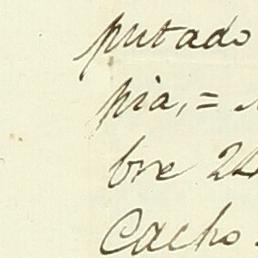 putado
pia, =
bre 24
Cacho.